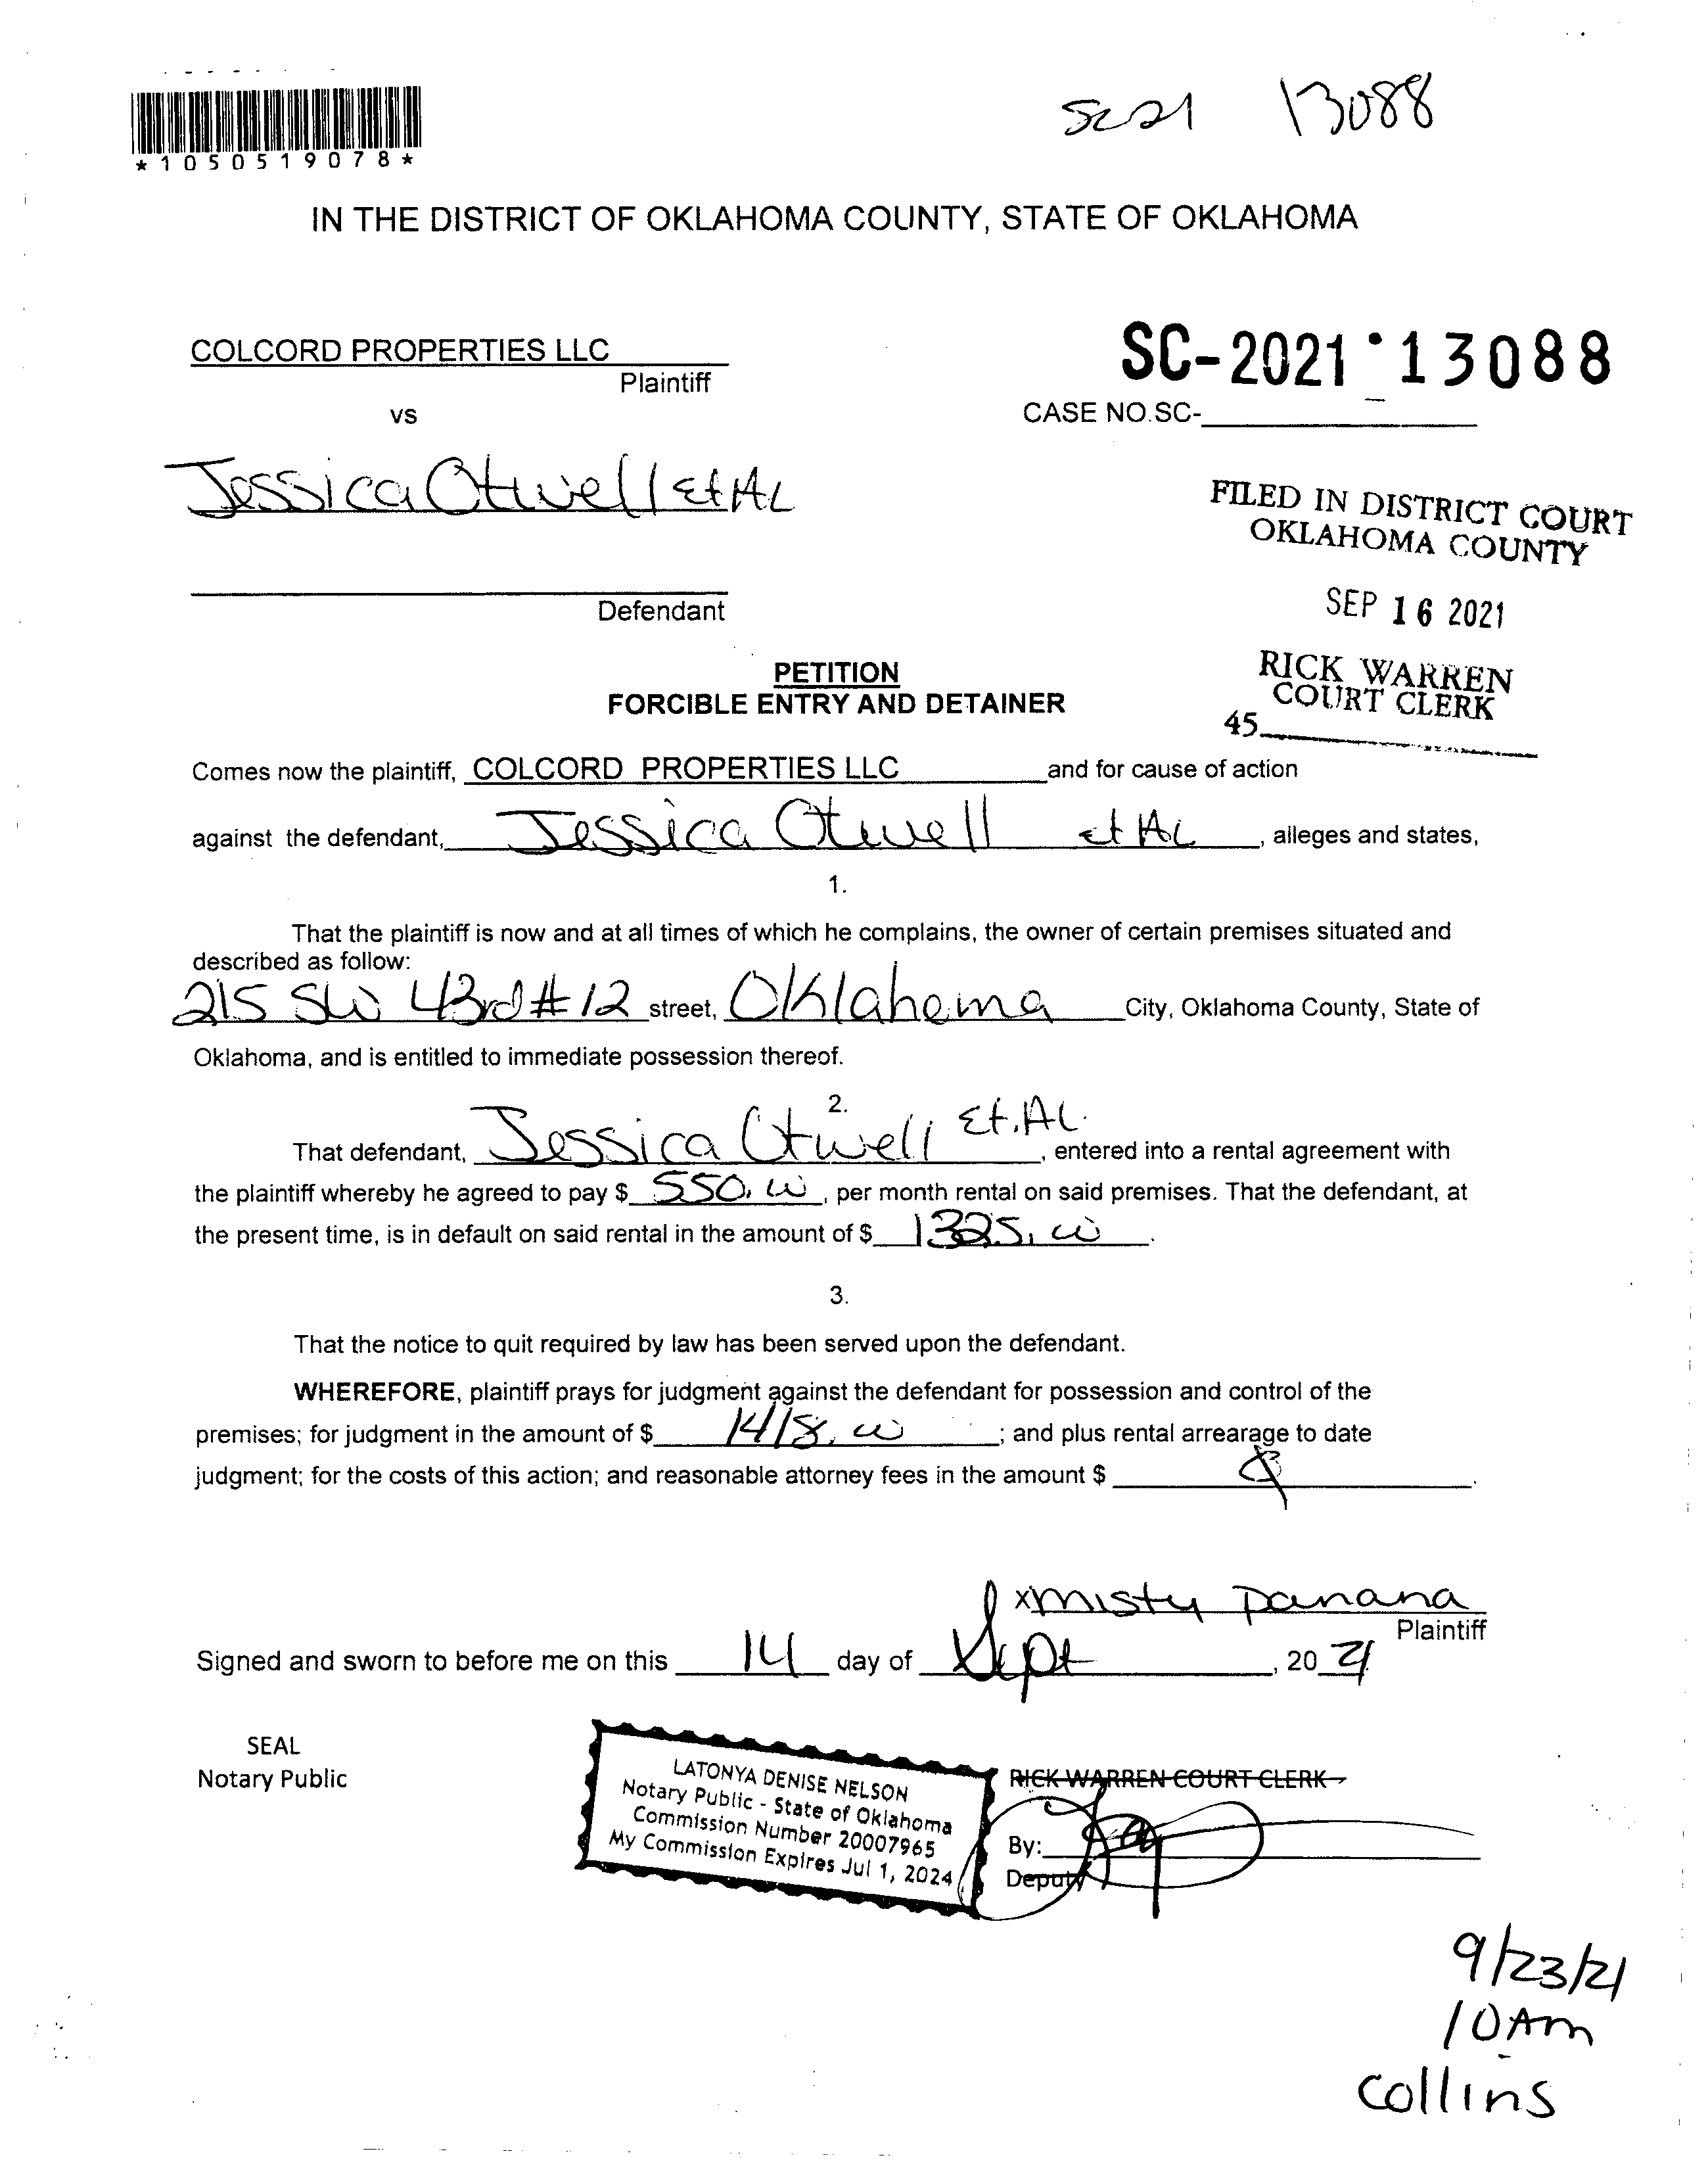 SC21 13088
*1050519078*
IN THE DISTRICT OF OKLAHOMA COUNTY, STATE OF OKLAHOMA
COLCORD PROPERTIES LLC
Plaintiff
SC-2021 13088
vs
CASE NO.SC-
Jessica Otwell Et AL
FILED IN DISTRICT COURT
OKLAHOMA COUNTY
Defendant
SEP 16 2021
PETITION
FORCIBLE ENTRY AND DETAINER
RICK WARREN
COURT CLERK
45
Comes now the plaintiff, COLCORD PROPERTIES LLC and for cause of action
against the defendant, Jessica Otwell et AL, alleges and states,
1.
That the plaintiff is now and at all times of which he complains, the owner of certain premises situated and
described as follow:
215 SW 43rd #12 street, Oklahoma City, Oklahoma County, State of
Oklahoma, and is entitled to immediate possession thereof.
2.
That defendant, Jessica Otwell Et.AL., entered into a rental agreement with
the plaintiff whereby he agreed to pay $ 550.00, per month rental on said premises. That the defendant, at
the present time, is in default on said rental in the amount of $ 1325.00.
3.
That the notice to quit required by law has been served upon the defendant.
WHEREFORE, plaintiff prays for judgment against the defendant for possession and control of the
premises; for judgment in the amount of $ 1418.00; and plus rental arrearage to date
judgment; for the costs of this action; and reasonable attorney fees in the amount $
x Misty Panana
Plaintiff
Signed and sworn to before me on this 14 day of Sept, 20 21
SEAL
Notary Public
LATONYA DENISE NELSON
Notary Public - State of Oklahoma
Commission Number 20007965
My Commission Expires Jul 1, 2024
RICK WARREN COURT CLERK
By:
Deputy
9/23/21
10 Am
Collins